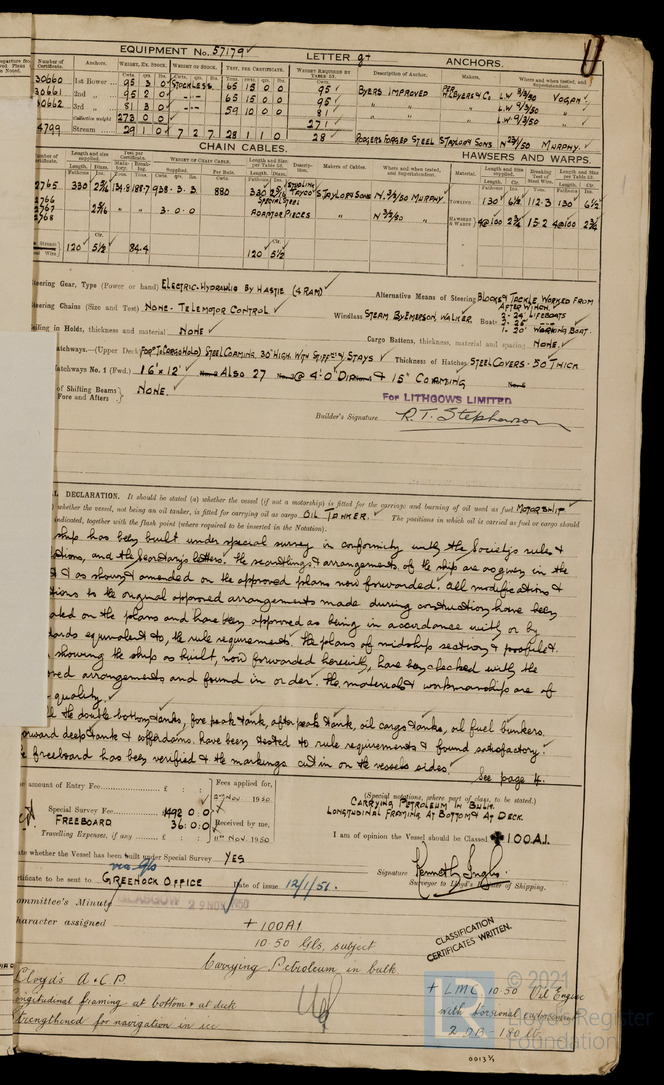 EQUIPMENT No. 57179 LETTER g+ ANCHORS.
Number of Certificate. Anchors. WEIGHT, EX. STOCK. WEIGHT OF STOCK. TEST, PER CERTIFICATE. WEIGHT REQUIRED BY TABLE 53. Description of Anchor. Makers. Where and when tested, and Superintendent.
30660 1st Bower 95 3 0 STOCKLESS 65 15 0 0 95 BYERS IMPROVED PER W.L.BYERS & Co. L.W. 9/3/50 VOGAN
30661 2nd 65 15 0 0 95 L.W. 9/3/50
30662 3rd 81 3 0 59 10 0 0 81 L.W. 9/3/50
Collective weight 273 0 0 271
4799 Stream 29 1 0 7 2 7 28 1 1 0 28 RODGERS FORGED STEEL S TAYLOR & SONS N 23/2/50 MURPHY.
CHAIN CABLES. HAWSERS AND WARPS.
2765 330 2 5/16 134.8 188.7 938.3.3 880 330 2 5/16 S TAYLOR & SONS N. 3/3/50 MURPHY
SPECIAL STEEL
TOWING 130 6½ 112.3 130 6½
2766
2767 2 5/16 " " 3.0.0 ADAPTOR PIECES " N 3/3/50 "
2768
HAWSERS & WARPS 4@100 2¾ 15.2 4@100 2¾
120 5½ 84.4 120 5½
Steering Gear, Type (Power or hand) ELECTRIC-HYDRAULIC BY HASTIE (4 RAM) Alternative Means of Steering BLOCKS & TACKLE WORKED FROM AFTER WINCH.
Steering Chains (Size and Test) NONE - TELEMOTOR CONTROL Windlass STEAM BY EMERSON WALKER. Boats 2-24' LIFEBOATS
1-20' WORKING BOAT.
Ceiling in Holds, thickness and material NONE Cargo Battens, thickness, material and spacing NONE.
Hatchways.—(Upper Deck) FORD (CARGO HOLD) STEEL COAMING 30" HIGH WITH STIFFRS & STAYS Thickness of Hatches STEEL COVERS - 50 THICK
Hatchways No. 1 (Fwd.) 16' x 12' ALSO 27 @ 4'0" DIAM & 15" COAMING
of Shifting Beams
Fore and Afters NONE.
For LITHGOWS LIMITED
Builder's Signature R.T. Stephenson
DECLARATION. It should be stated (a) whether the vessel (if not a motorship) is fitted for the carriage and burning of oil used as fuel MOTORSHIP
whether the vessel, not being an oil tanker, is fitted for carrying oil as cargo OIL TANKER. The positions in which oil is carried as fuel or cargo should
indicated, together with the flash point (where required to be inserted in the Notation).
ship has been built under special survey in conformity with the Society's rules &
and the Secretary's letters. The scantlings & arrangements of the ship are as given in the
& as shown & amended on the approved plans now forwarded. All modifications &
to the original approved arrangements made during construction have been
on the plans and have been approved as being in accordance with or by
equivalent to, the rule requirements. The plans of midship section & profile &
showing the ship as built, now forwarded herewith, have been checked with the
arrangements and found in order. The materials & workmanship are of
quality.
the double bottom tanks, fore peak tank, after peak tank, oil cargo tanks, oil fuel bunkers
forward deep tank & cofferdams have been tested to rule requirements & found satisfactory.
freeboard has been verified & the markings cut in on the vessels sides. See page 4.
amount of Entry Fee £ : : Fees applied for,
2nd Nov 1950
Special Survey Fee 1492 0:0
FREEBOARD 36:0:0 Received by me,
Travelling Expenses, if any £ : : Nov. 1950
(Special notations, where part of class, to be stated.)
CARRYING PETROLEUM IN BULK.
LONGITUDINAL FRAMING AT BOTTOM & AT DECK.
I am of opinion the Vessel should be Classed ✠100A1.
whether the Vessel has been built under Special Survey YES
Certificate to be sent to GREENOCK OFFICE Date of issue 12/1/51.
Signature Kenneth Inglis
Surveyor to Lloyd's Register of Shipping.
Committee's Minute GLASGOW 29 NOV 1950
Character assigned + 100A1
10.50 Gls, subject
Carrying Petroleum in bulk.
CLASSIFICATION CERTIFICATES WRITTEN.
Lloyd's A & C P.
Longitudinal framing at bottom & at deck
Strengthened for navigation in ice
+ LMC 10.50 Oil Engine
with torsional endorsement
2 DB - 180 lb
© 2021
Lloyd's Register
Foundation
0013¾